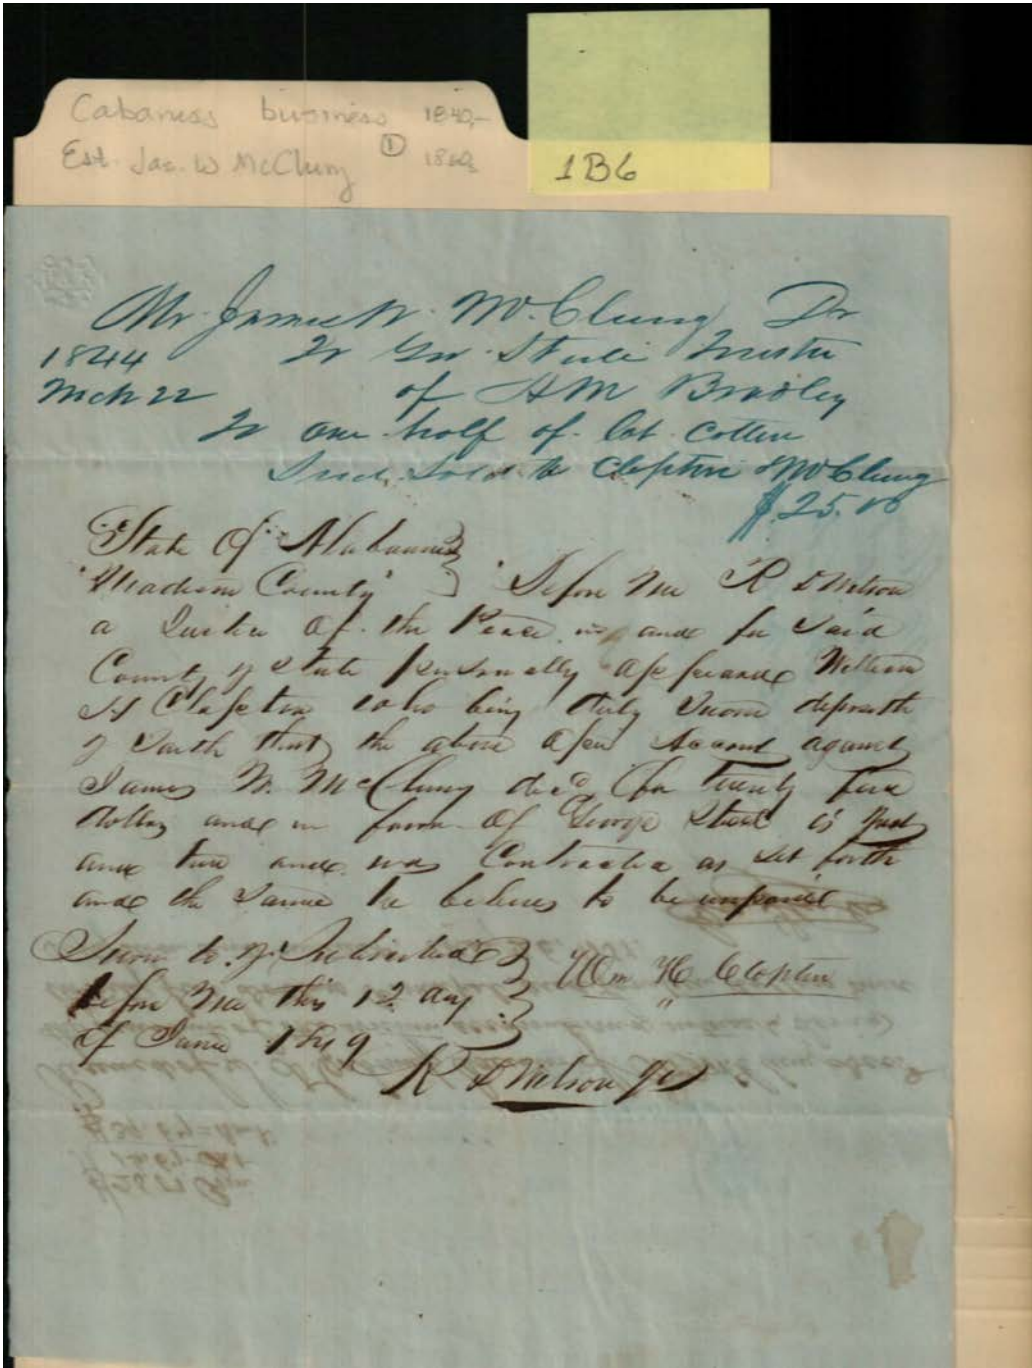 Cabaness business 1840,-
Est. Jas. W McClung ① 1860s
1B6
Mr James W. McClung Dr
1844 To Geo. Steele Trustee
Mch 22 of H M Bradley
To one half of lot Cotten
Seed Sold to Clopton & McClung
$.25.00
State Of Alabama }
Madison County } Before Me R D Wilson
a Justice Of the Peace in and for Said
County & State personally appeared William
H Clopton who being duly Sworn deposeth
& Saith that the above Open Account against
James W. McClung decd for Twenty five
dollars and in favor Of George Steele is Just
and true and was Contracted as Set forth
and the Same he believes to be unpaid
Sworn to & Subscribed } Wm H Clopton
before Me this 12 day
Of June 1849
R D Wilson JP